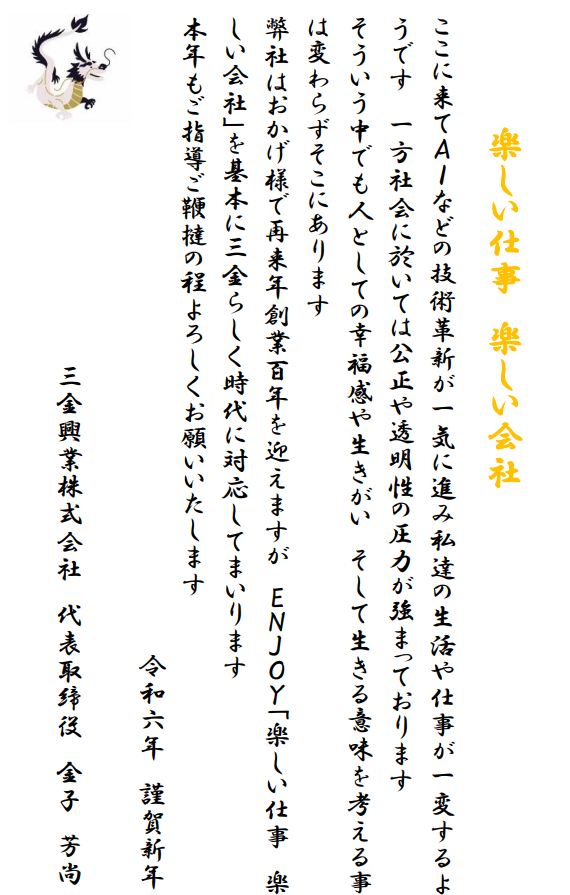 楽しい仕事　楽しい会社
ここに来てＡＩなどの技術革新が一気に進み私達の生活や仕事が一変するよ
うです　一方社会に於いては公正や透明性の圧力が強まっております
そういう中でも人としての幸福感や生きがい　そして生きる意味を考える事
は変わらずそこにあります
弊社はおかげ様で再来年創業百年を迎えますが　ＥＮＪＯＹ「楽しい仕事　楽
しい会社」を基本に三金らしく時代に対応してまいります
本年もご指導ご鞭撻の程よろしくお願いいたします
令和六年　謹賀新年
三金興業株式会社　代表取締役　金子　芳尚